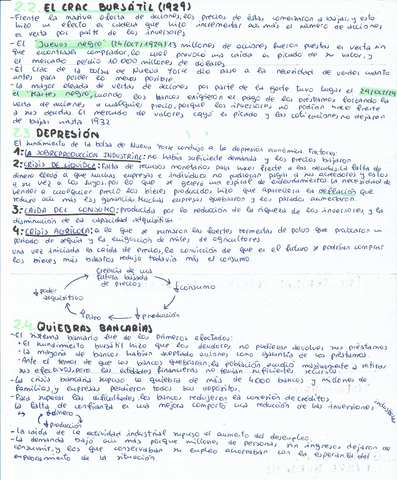 2.2. EL CRAC BURSÁTIL (1929)
-Frente la masiva oferta de acciones, los precios de éstas comenzaron a bajar, y esto
hizo un efecto en cadena que hizo incrementar aún más el número de acciones
en venta por parte de los inversores.
-El "Jueves negro" (24/OCT/1929) 13 millones de acciones fueron puestas en venta sin
que encontrara comprador, lo cual provocó una caída en picado de su valor, y
el mercado perdió 10 000 millones de dólares.
-El crac de la bolsa de Nueva York dio paso a la necesidad de vender cuanto
antes para perder lo menos posible.
-La mayor oleada de ventas de acciones por parte de la gente tuvo lugar el 29/OCT/29
el "Martes negro", cuando los bancos exigieron el pago de los préstamos forzando la
venta de acciones a cualquier precio, porque los inversores no podían hacer frente
a sus deudas. El mercado de valores cayó en picado y las cotizaciones no dejaron
de bajar hasta 1932
2.3 DEPRESIÓN
El hundimiento de la bolsa de Nueva York condujo a la depresión económica. Factores:
1. LA SOBREPRODUCCIÓN INDUSTRIAL: no había suficiente demanda y los precios bajaron
2. CRISIS DE LIQUIDEZ: falta de recursos monetarios para hacer frente a las deudas. La falta de
dinero llevó a que muchas empresas e individuos no pudieran pagar a sus acreedores y estos
a su vez a los suyos, por lo que se generó una espiral de endeudamiento. La necesidad de
vender a cualquier precio los bienes producidos hizo que apareciera la deflación que
redujo aún más las ganancias. Muchas empresas quebraron y los parados aumentaron.
3. CAÍDA DEL CONSUMO: producida por la reducción de la riqueza de los inversores y la
disminución de su capacidad adquisitiva
4. CRISIS AGRÍCOLA: a la que se sumaron las fuertes tormentas de polvo que provocaron un
período de sequía y la emigración de miles de agricultores.
una vez iniciada la caída de precios, la convicción de que en el futuro se podrían comprar
los bienes más baratos redujo todavía más el consumo
creencia de una
futura bajada
de precios
↓ poder
adquisitivo
↓ consumo
↑ Paro
↓ producción
2.4. QUIEBRAS BANCARIAS
-El sistema bancario fue de los primeros afectados:
• El hundimiento bursátil hizo que los deudores no pudieran devolver sus préstamos
• La mayoría de bancos habían aceptado acciones como garantía de los préstamos
• Ante el temor de que los bancos quebraran, la población acudió masivamente a retirar
sus efectivos, pero las entidades financieras no tenían suficientes recursos
-La crisis bancaria supuso la quiebra de más de 4000 bancos y millones de
familias y empresas perdieron todos sus depósitos.
-Para superar las dificultades, los bancos redujeron la concesión de créditos.
La falta de confianza en una mejora comportó una reducción de las inversiones industriales
↓ dinero
↓ producción
-La caída de la actividad industrial supuso el aumento del desempleo
-La demanda bajó aún más porque millones de personas sin ingresos dejaron de
consumir, y los que conservaban su empleo ahorraban con la esperanza del
empeoramiento de la situación.